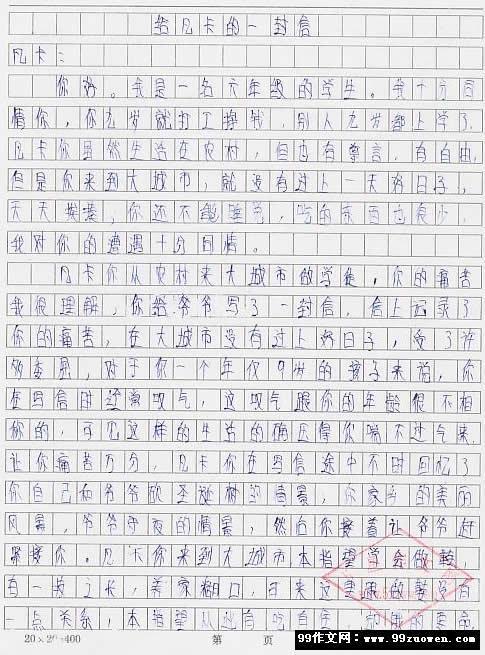 给凡卡的一封信
凡卡：
你好。我是一名六年级的学生。我十分同
情你，你九岁就打工挣钱，别人九岁都上学了，
凡卡你虽然生活在农村，但也有尊言，有自由，
但是你来到大城市，就没有过上一天好日子，
天天挨揍，你还不能睡觉，吃的东西也很少，
我对你的遭遇十分同情。
凡卡你从农村来大城市做学徒，你的痛苦
我很理解，你给爷爷写了一封信，信上记录了
你的痛苦，在大城市没有过上好日子，受了许
多委屈，对于你一个年仅9岁的孩子来说，你
在写信时经常叹气，这叹气跟你的年龄很不相
你的，可见这样的生活的确压得你喘不过气来，
让你痛苦万分，凡卡你在写信途中不时回忆了
你自己和爷爷砍圣诞树的情景，你家乡的美丽
风景，爷爷守夜的情景，然后你接着让爷爷赶
紧接你。凡卡你来到大城市本指望学会做鞋，
有一技之长，养家糊口，可来这里跟做鞋没有
一点关系，本指望从这有吃有住，
20×20=400
第 页
99作文网：www.99zuowen.com